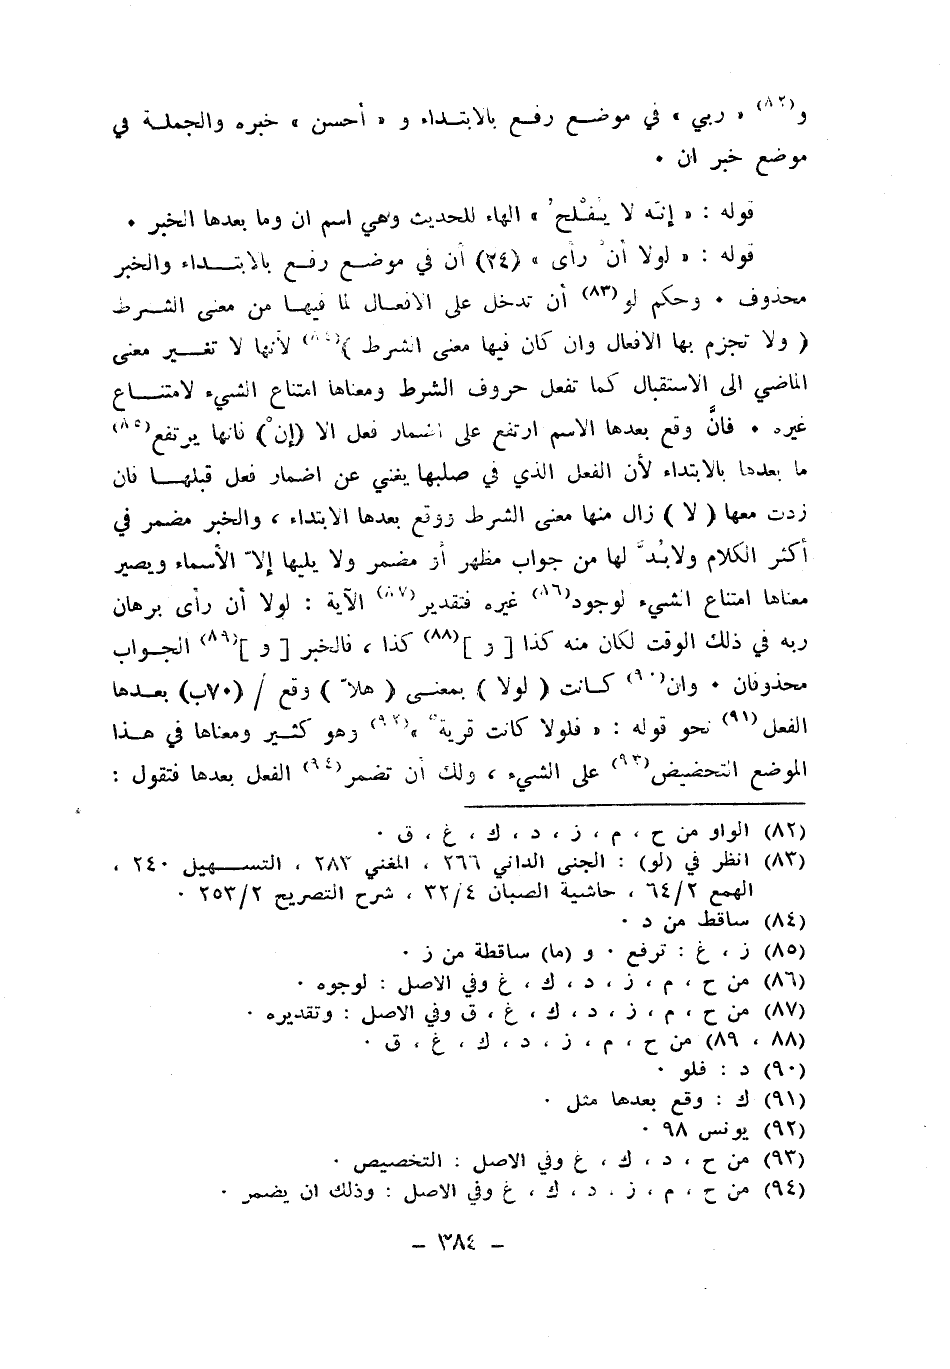 و(٨٢) « ربي » في موضع رفع بالابتداء و « أحسن » خبره والجملة في
موضع خبر ان ٠
قوله : « إنّه لا يُفْلح ُ » الهاء للحديث وهي اسم ان وما بعدها الخبر ٠
قوله : « لولا أن ْ رأى » (٢٤) أن في موضع رفع بالابتداء والخبر
محذوف ٠ وحكم لو(٨٣) أن تدخل على الافعال لما فيها من معنى الشرط
( ولا تجزم بها الافعال وان كان فيها معنى الشرط )(٨٤) لأنها لا تغير معنى
الماضي الى الاستقبال كما تفعل حروف الشرط ومعناها امتناع الشيء لامتناع
غيره ٠ فانَّ وقع بعدها الاسم ارتفع على اضمار فعل الا (إن ْ) فانها يرتفع(٨٥)
ما بعدها بالابتداء لأن الفعل الذي في صلبها يغني عن اضمار فعل قبلها فان
زدت معها ( لا ) زال منها معنى الشرط ووقع بعدها الابتداء ، والخبر مضمر في
أكثر الكلام ولابُد َّ لها من جواب مظهر أو مضمر ولا يليها إلا ّ الأسماء ويصير
معناها امتناع الشيء لوجود(٨٦) غيره فتقدير(٨٧) الآية : لولا أن رأى برهان
ربه في ذلك الوقت لكان منه كذا [ و ](٨٨) كذا ، فالخبر [ و ](٨٩) الجواب
محذوفان ٠ وان(٩٠) كانت ( لولا ) بمعنى ( هلا ّ ) وقع / (٧٠ب) بعدها
الفعل(٩١) نحو قوله : « فلولا كانت قرية ٌ »(٩٢) وهو كثير ومعناها في هذا
الموضع التحضيض(٩٣) على الشيء ، ولك أن تضمر(٩٤) الفعل بعدها فتقول :
(٨٢) الواو من ح ، م ، ز ، د ، ك ، غ ، ق ٠
(٨٣) انظر في (لو) : الجنى الداني ٢٦٦ ، المغني ٢٨٣ ، التسهيل ٢٤٠ ،
الهمع ٦٤/٢ ، حاشية الصبان ٣٢/٤ ، شرح التصريح ٢٥٣/٢ ٠
(٨٤) ساقط من د ٠
(٨٥) ز ، غ : ترفع ٠ و (ما) ساقطة من ز ٠
(٨٦) من ح ، م ، ز ، د ، ك ، غ وفي الاصل : لوجوه ٠
(٨٧) من ح ، م ، ز ، د ، ك ، غ ، ق وفي الاصل : وتقديره ٠
(٨٨ ، ٨٩) من ح ، م ، ز ، د ، ك ، غ ، ق ٠
(٩٠) د : فلو ٠
(٩١) ك : وقع بعدها مثل ٠
(٩٢) يونس ٩٨ ٠
(٩٣) من ح ، د ، ك ، غ وفي الاصل : التخصيص ٠
(٩٤) من ح ، م ، ز ، د ، ك ، غ وفي الاصل : وذلك ان يضمر ٠
– ٣٨٤ –